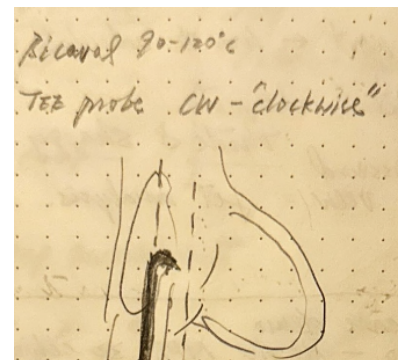 Bicaval 90-120°c
TEE probe CW - "clockwise"